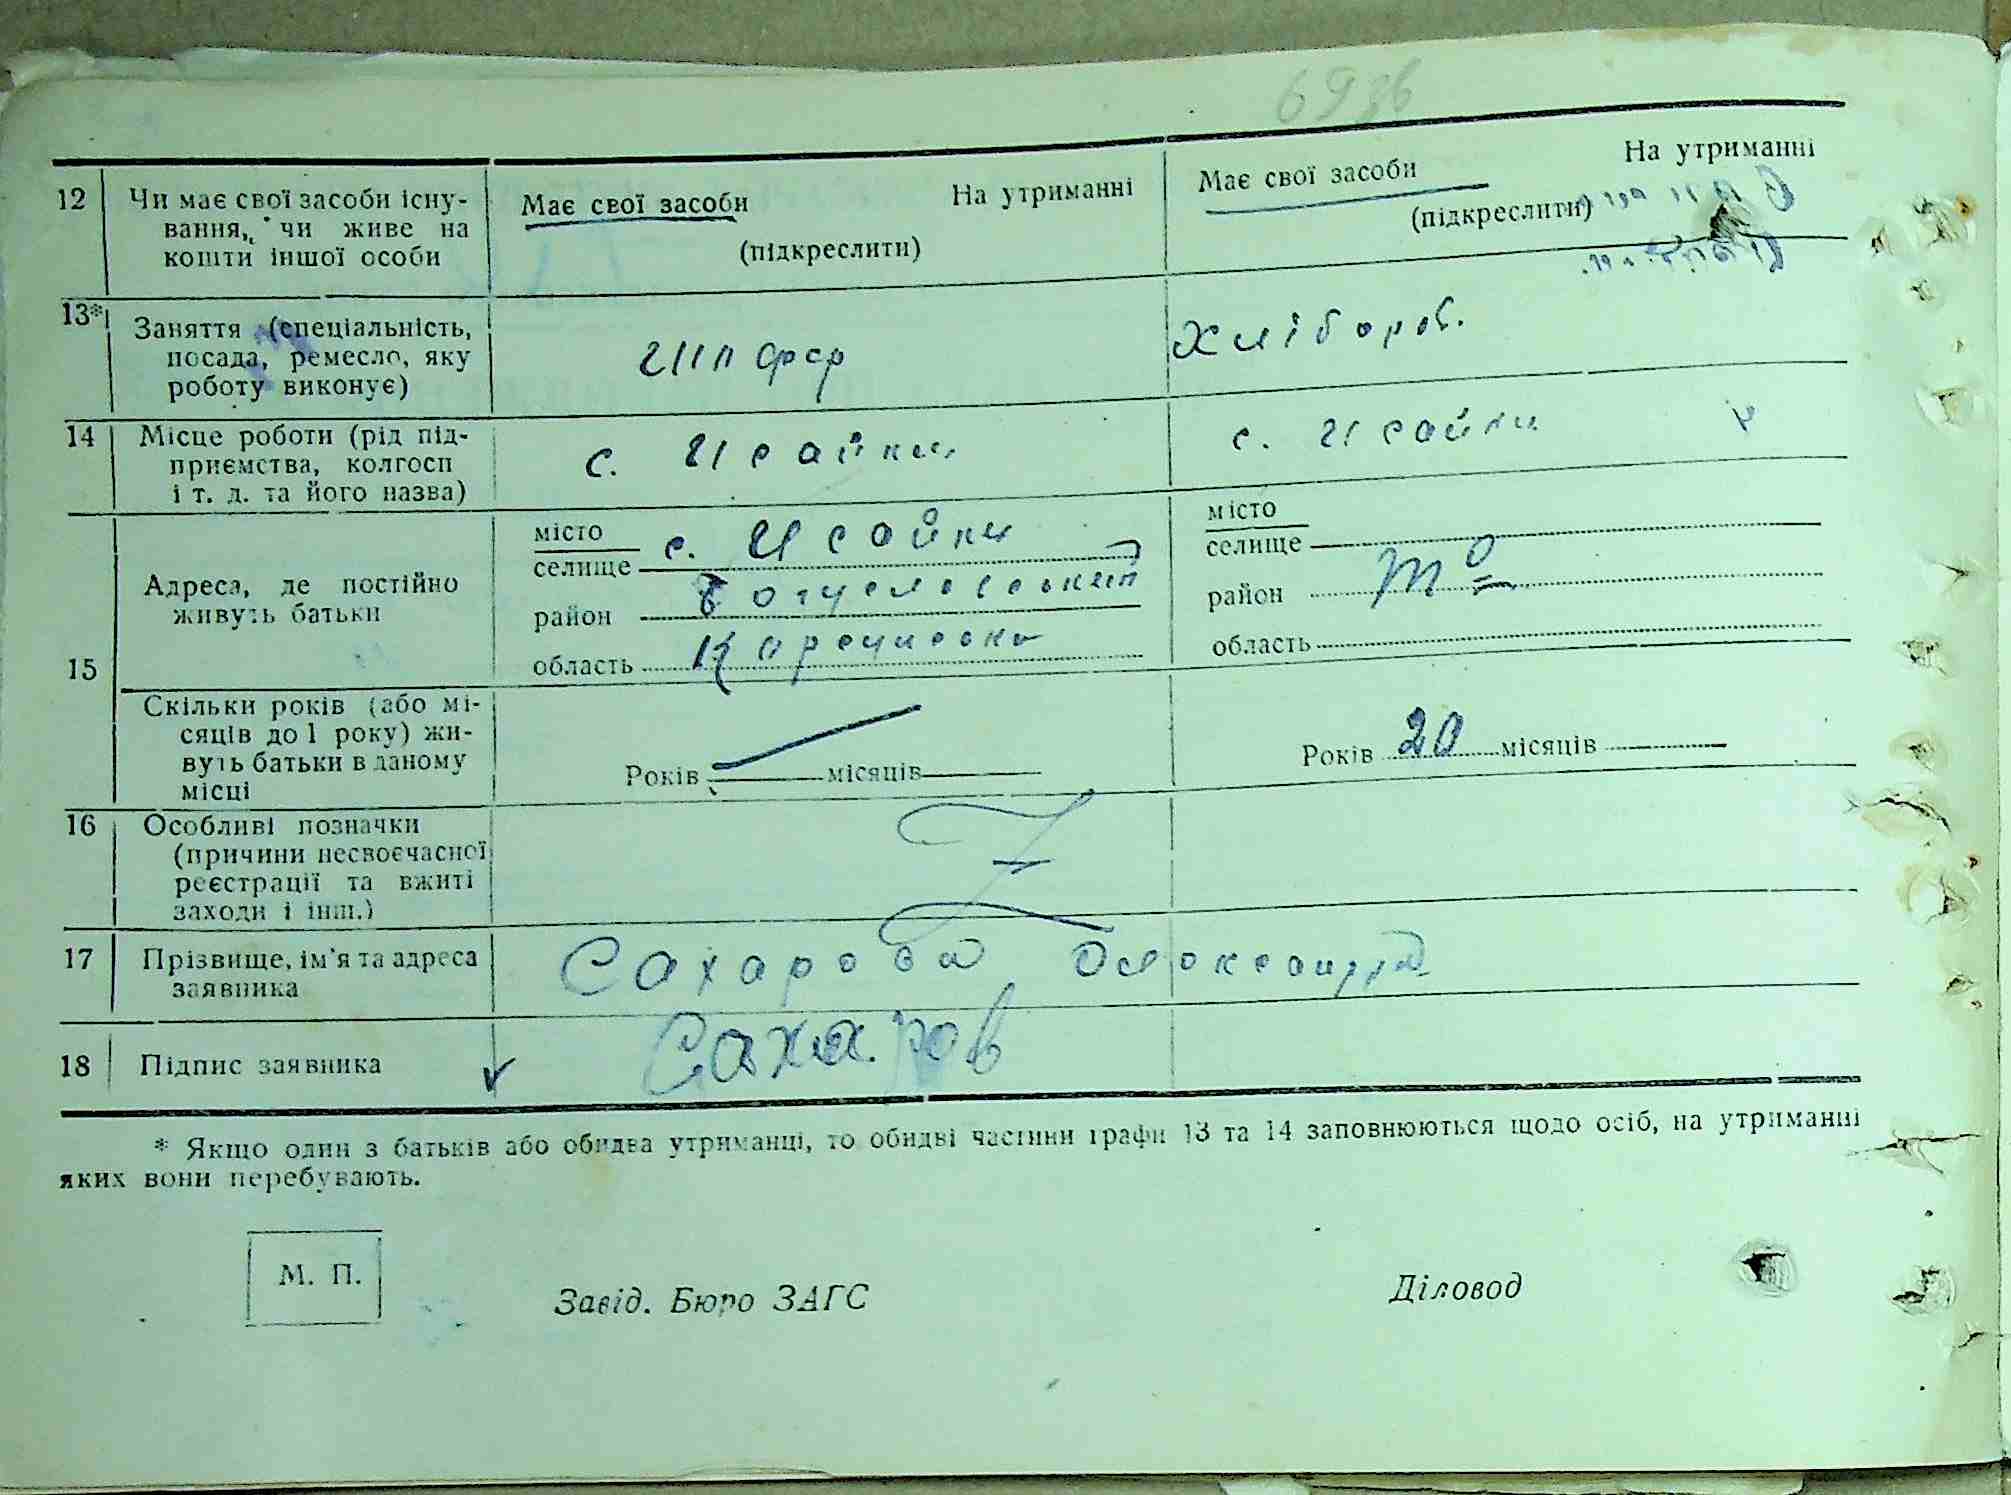 6936
12 Чи має свої засоби існу-
вання, чи живе на
кошти іншої особи
Має свої засоби На утриманні
(підкреслити)
Має свої засоби На утриманні
(підкреслити)
13* Заняття (спеціальність,
посада, ремесло, яку
роботу виконує)
Хлібороб.
14 Місце роботи (рід під-
приємства, колгосп
і т. д. та його назва)
с. Исайки
с. Исайки
15 Адреса, де постійно
живуть батьки
місто
селище с. Исайки
район Богуславський
область
місто
селище
район то
область
Скільки років (або мі-
сяців до 1 року) жи-
вуть батьки в даному
місці
Років місяців
Років 20 місяців
16 Особливі позначки
(причини несвоєчасної
реєстрації та вжиті
заходи і інш.)
17 Прізвище, ім'я та адреса
заявника
Сахарова Олександра
18 Підпис заявника
Сахаров
* Якщо один з батьків або обидва утриманці, то обидві частини графи 13 та 14 заповнюються щодо осіб, на утриманні
яких вони перебувають.
М. П.
Завід. Бюро ЗАГС
Діловод